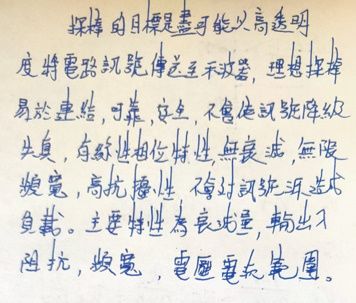 探棒的目標是盡可能以高透明
度將電路訊號傳送至示波器，理想探棒
易於連結，可靠，安全，不會使訊號降級
失真，有線性相位特性，無衰減，無限
頻寬，高抗擾性 不會對訊號源造成
負載。主要特性為衰減量，輸出入
阻抗，頻寬，電壓電流範圍。